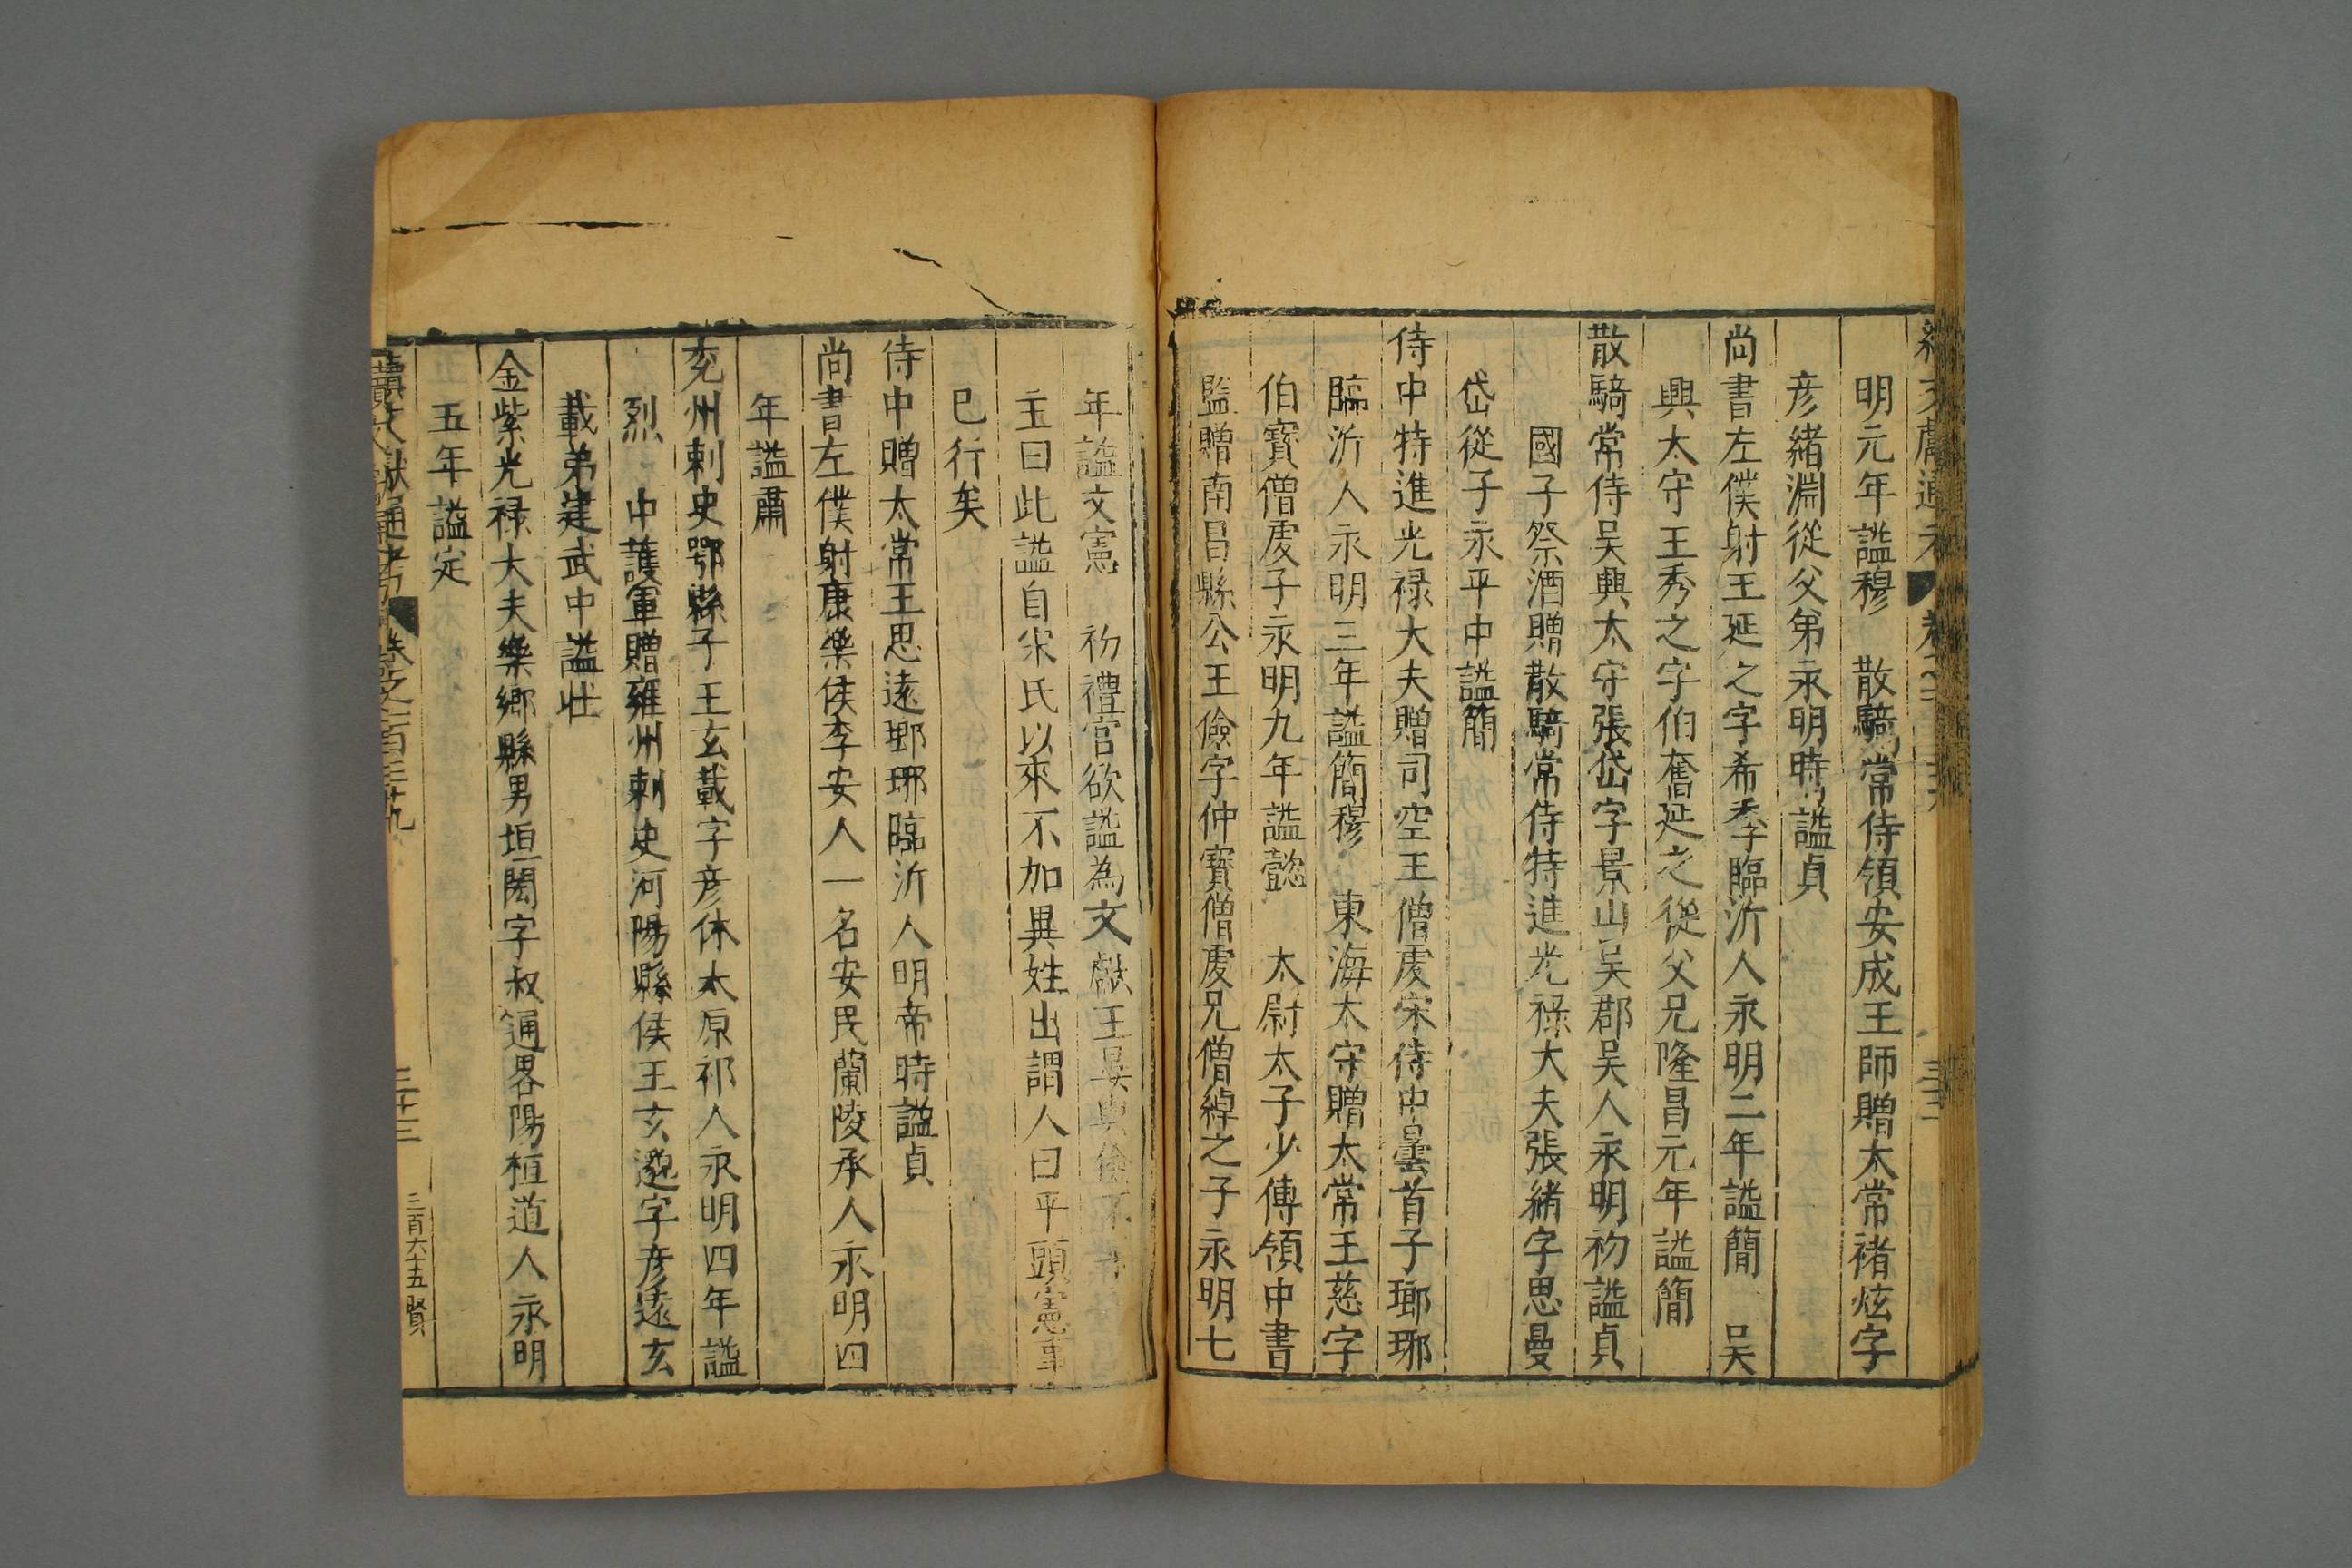 明元年謚穆　散騎常侍領安成王師贈太常褚炫字
彥緒淵從父弟永明時謚貞
尚書左僕射王延之字希季臨沂人永明二年謚簡　吳
興太守王秀之字伯奮延之從父兄隆昌元年謚簡
散騎常侍吳興太守張岱字景山吳郡吳人永明初謚貞
國子祭酒贈散騎常侍特進光祿大夫張緒字思曼
岱從子永平中謚簡
侍中特進光祿大夫贈司空王僧虔宋侍中曇首子瑯琊
臨沂人永明三年謚簡穆　東海太守贈太常王慈字
伯寳僧虔子永明九年謚懿　太尉太子少傅領中書
監贈南昌縣公王儉字仲寳僧虔兄僧綽之子永明七
年謚文憲　初禮官欲謚為文獻王晏與儉不
主曰此謚自宋氏以來不加異姓出謂人曰平頭憲事
已行矣
侍中贈太常王思遠瑯琊臨沂人明帝時謚貞
尚書左僕射康樂侯李安人一名安民蘭陵承人永明四
年謚肅
兖州刺史鄂縣子王玄載字彥休太原祁人永明四年謚
烈　中護軍贈雍州刺史河陽縣侯王玄邈字彥遠玄
載弟建武中謚壯
金紫光禄大夫樂鄉縣男垣閎字叔通畧陽桓道人永明
五年謚定
續文獻通考
卷之一百三十九
三十三
三百六十五賢